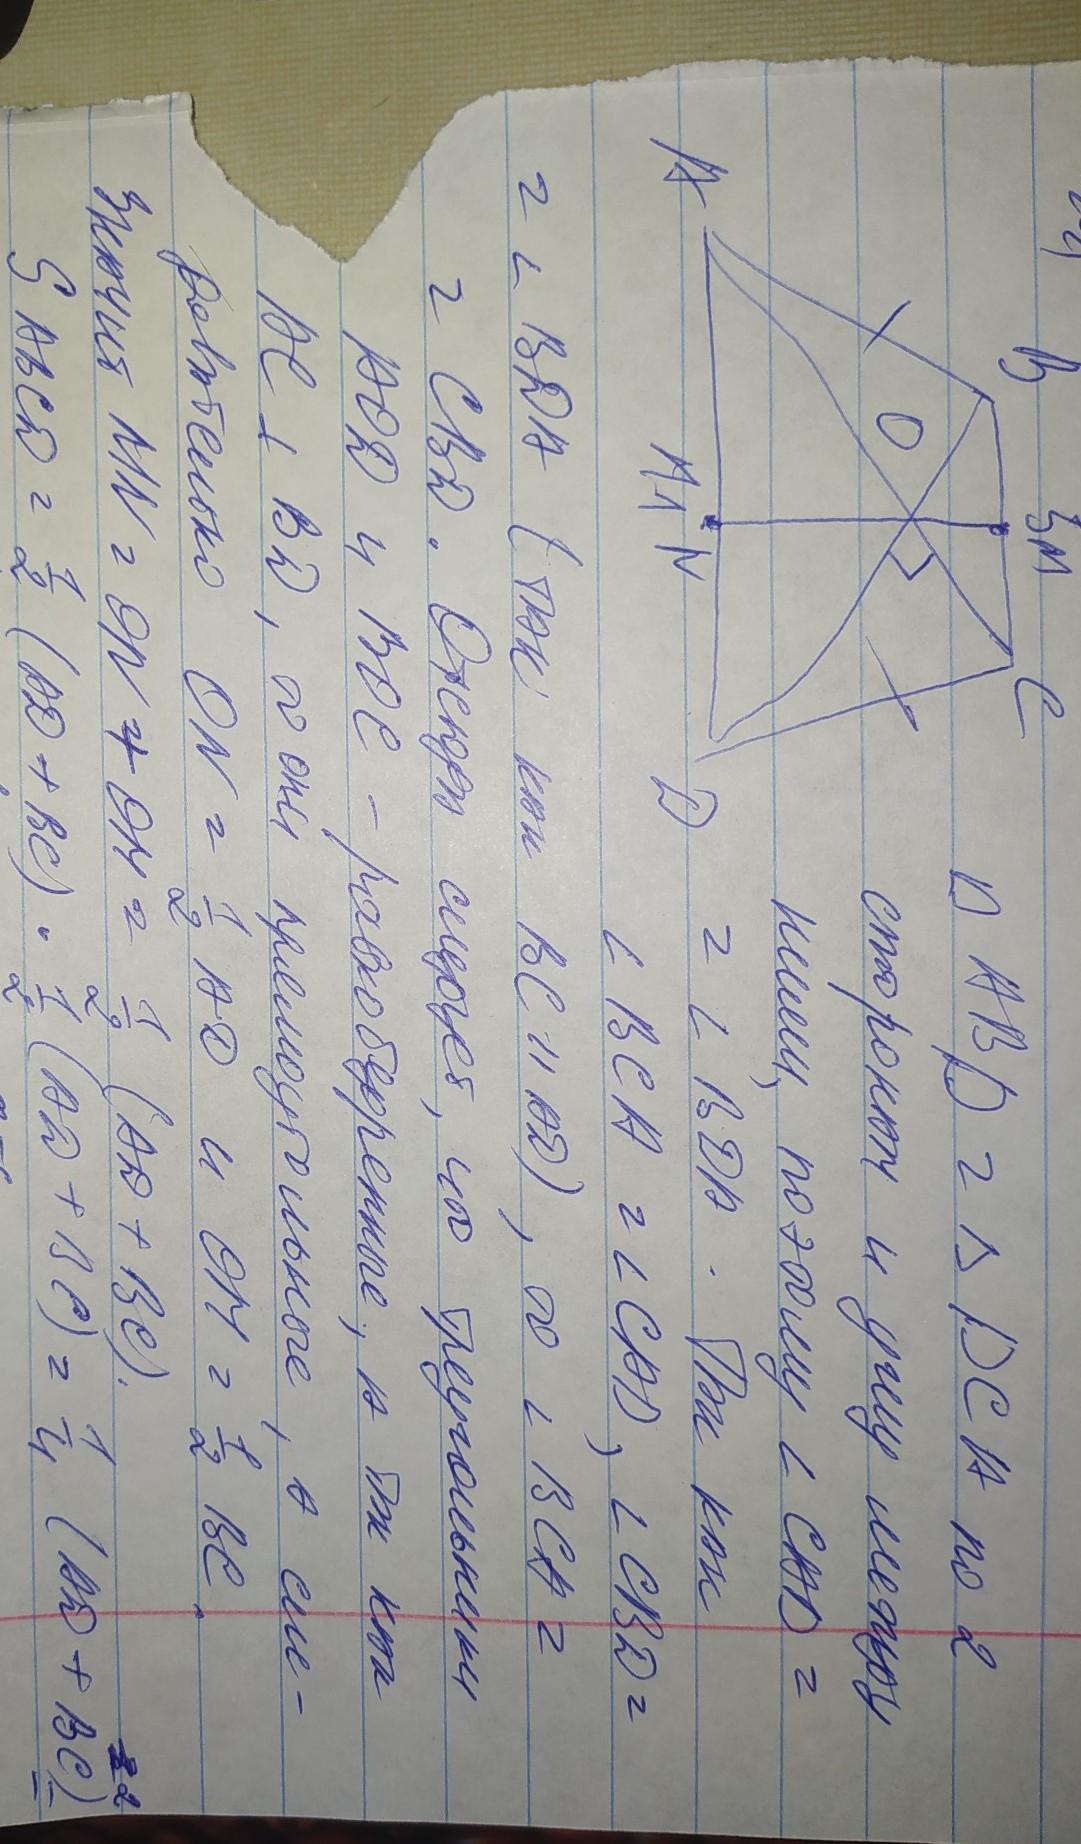 B M C
O
A N D
Δ ABD = Δ DCA по 2
сторонам и углу между
ними, поэтому ∠ CAD =
= ∠ BDA. Так как
∠ BCA = ∠ CAD, ∠ CBD =
= ∠ BDA (так как BC || AD), то ∠ BCA =
= CBD. Откуда следует, что треугольники
AOD и BOC - равнобедренные, а так как
AC ⊥ BD, то они прямоугольные, а сле-
довательно ON = 1/2 AD и OM = 1/2 BC.
Значит MN = ON + OM = 1/2 (AD + BC).
S ABCD = 1/2 (AD + BC) · 1/2 (AD + BC) = 1/4 (AD + BC)²